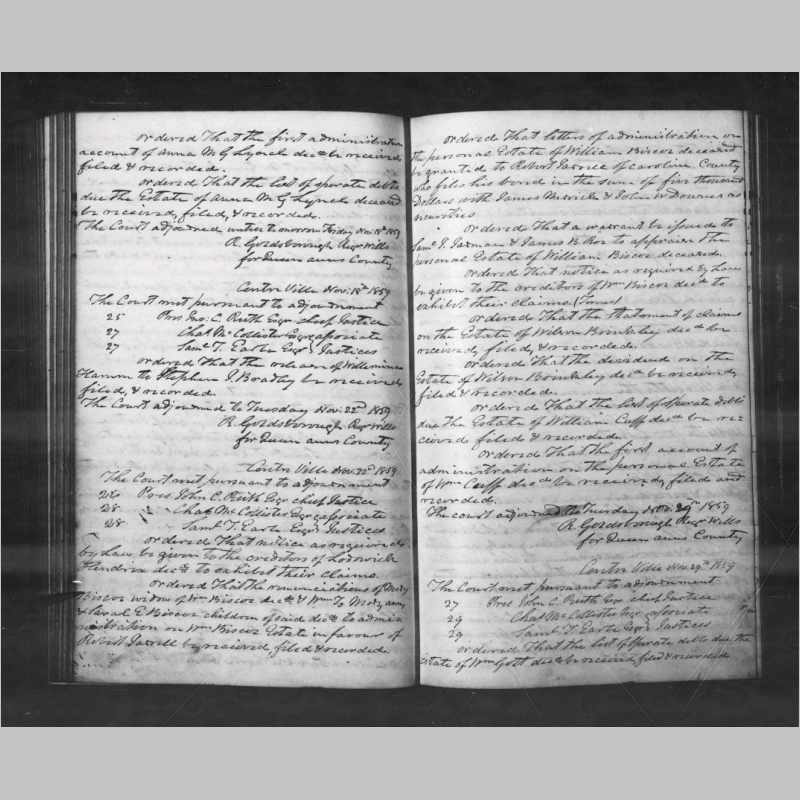 ordered That the first administration
account of Anna M G Lynch decd be received
filed & recorded.
ordered That the list of sperate debts
due the Estate of Anna M G Lynch deceased
be received, filed, & recorded.
The Court adjourned until tomorrow Friday Nov 18th 1859
R. Goldsborough Regr Wills
for Queen anns County
Centre Ville Nov. 18th 1859
The Court met pursuant to adjournment
25 Pres Jno. C. Ruth Esqr chief Justice
27 Chas Mc Collister Esqr associate
27 Saml T. Earle Esqr Justices
ordered That the release of
to Stephen J. Bradley be received,
filed, & recorded.
The Court adjourned to Tuesday Nov. 22d 1859
R. Goldsborough Regr Wills
for Queen anns County
Centre Ville Nov. 22d 1859
The Court met pursuant to adjournment
26 Pres John C. Ruth Esqr chief Justice
28 " Chas Mc Collister Esqr associate
28 " Saml T. Earle Esqr Justices
ordered That notice as required
by Law be given to the creditors of
decd to exhibit their claims.
ordered That the renunciations of Mary
Biscoe widow of Wm Biscoe decd & Wm T. Mary ann,
& Sarah E Biscoe children of said decd to admin
istration on Wm Biscoe Estate in favour of
Robert Jarrell be received, filed & recorded.
ordered That letters of administration on
the personal Estate of William Biscoe deceased
be granted to Robert Jarrell of Caroline County
who files his bond in the sum of five thousand
Dollars with James Merrick & John W Downes as
sureties
ordered That a warrant be issued to
Saml J. & James B. to appraise the
personal Estate of William Biscoe deceased.
ordered That notice as required by Law
be given to the creditors of Wm Biscoe decd to
exhibit their claims.
ordered That the statement of claims
on the Estate of Wilson Brinkley decd be
received, filed, & recorded.
ordered That the dividend on the
Estate of Wilson Brinkley decd be received,
filed & recorded.
ordered That the list of sperate debts
due the Estate of William Cuff decd be re
ceived filed & recorded.
ordered That the first account of
administration on the personal Estate
of Wm Cuff decd be received, filed and
recorded.
The court adjourned to Tuesday Nov. 29th 1859
R. Goldsborough Regr Wills
for Queen anns County
Centre Ville Nov 29th 1859
The Court met pursuant to adjournment
27 Pres John C. Ruth Esqr chief Justice
29 Chas Mc Collister Esqr associate
29 Saml T. Earle Esqr Justices
ordered That the list of sperate debts due the
Estate of Wm Gott decd be received, filed & recorded